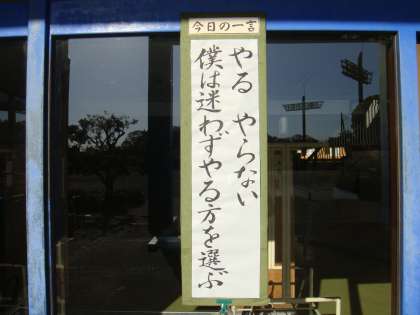 今日の一言
やる やらない
僕は迷わずやる方を選ぶ